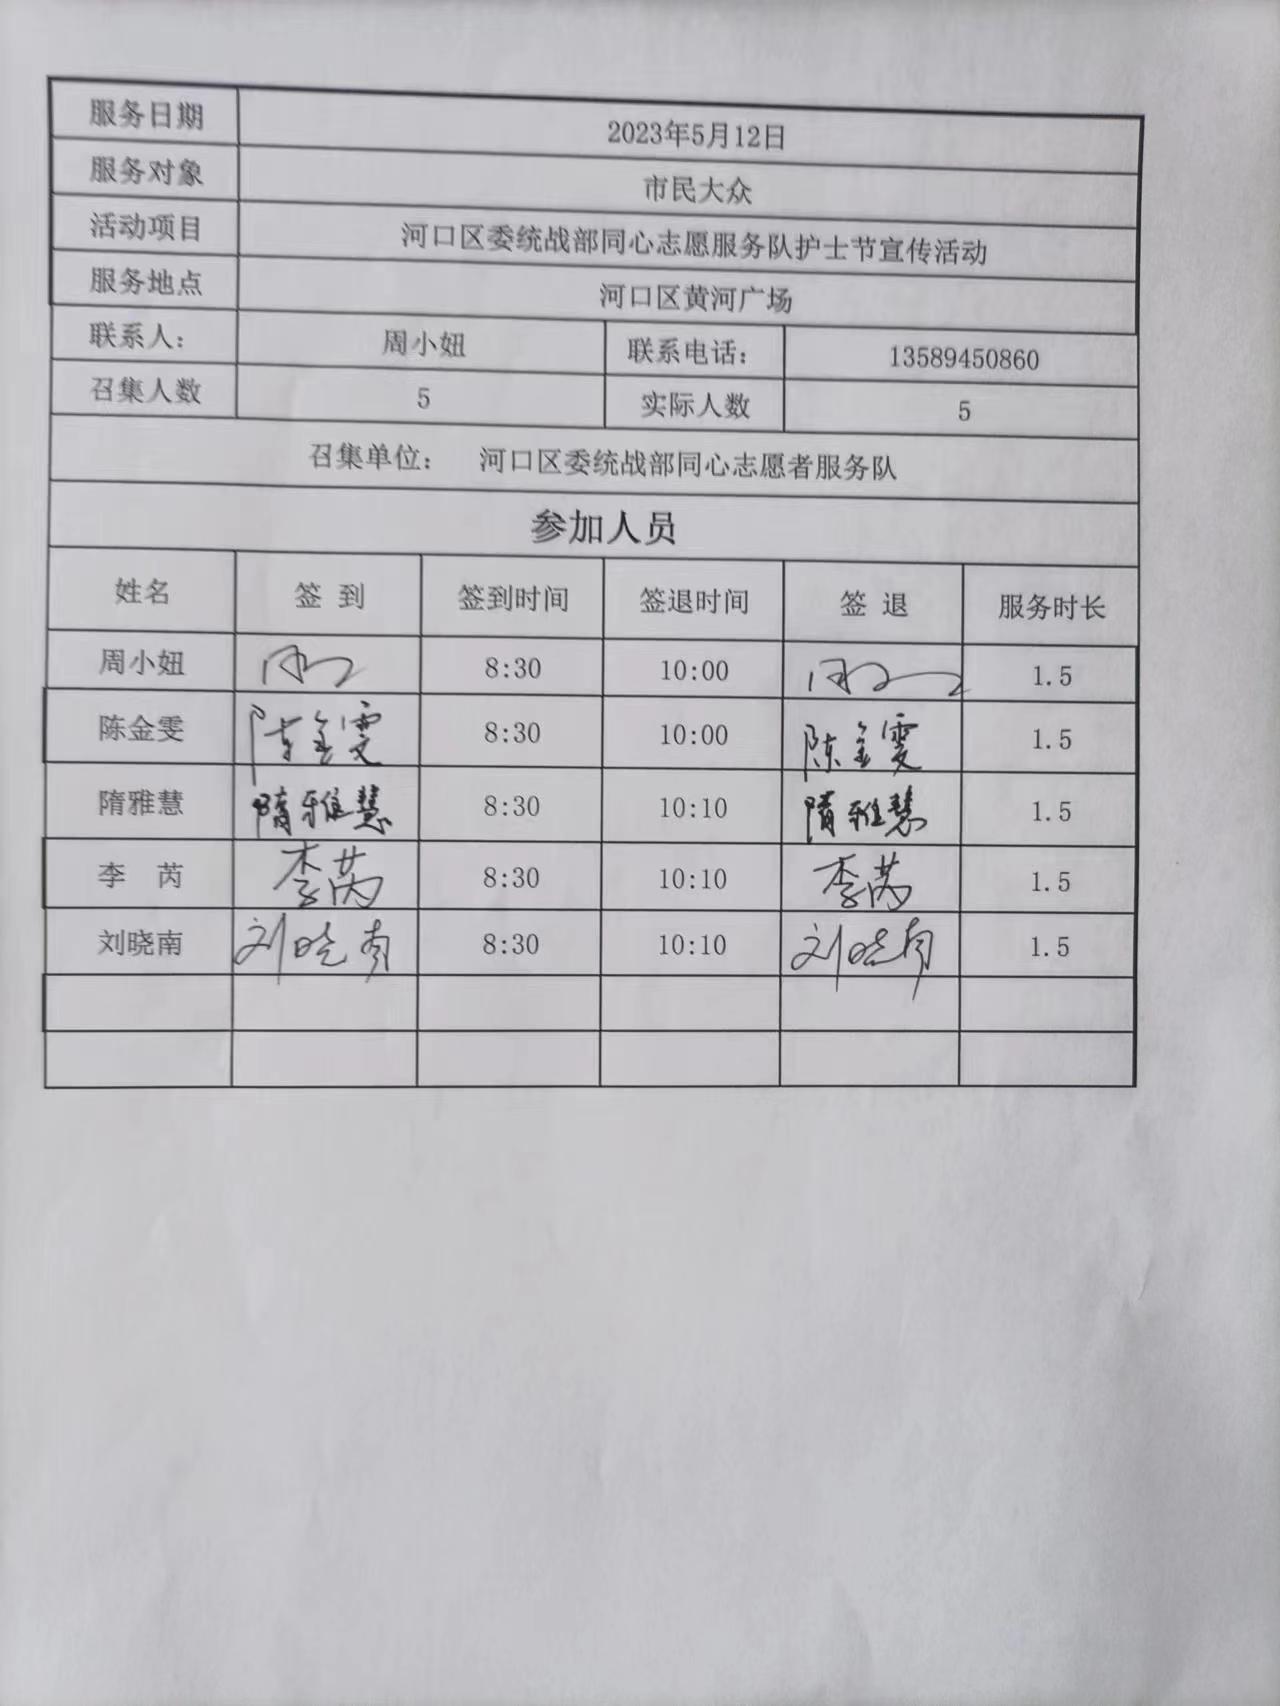 服务日期 2023年5月12日
服务对象 市民大众
活动项目 河口区委统战部同心志愿服务队护士节宣传活动
服务地点 河口区黄河广场
联系人： 周小妞 联系电话： 13589450860
召集人数 5 实际人数 5
召集单位： 河口区委统战部同心志愿者服务队
参加人员
姓名 签 到 签到时间 签退时间 签 退 服务时长
周小妞 8:30 10:00 1.5
陈金雯 陈金雯 8:30 10:00 陈金雯 1.5
隋雅慧 隋雅慧 8:30 10:10 隋雅慧 1.5
李 芮 李芮 8:30 10:10 李芮 1.5
刘晓南 刘晓南 8:30 10:10 刘晓南 1.5